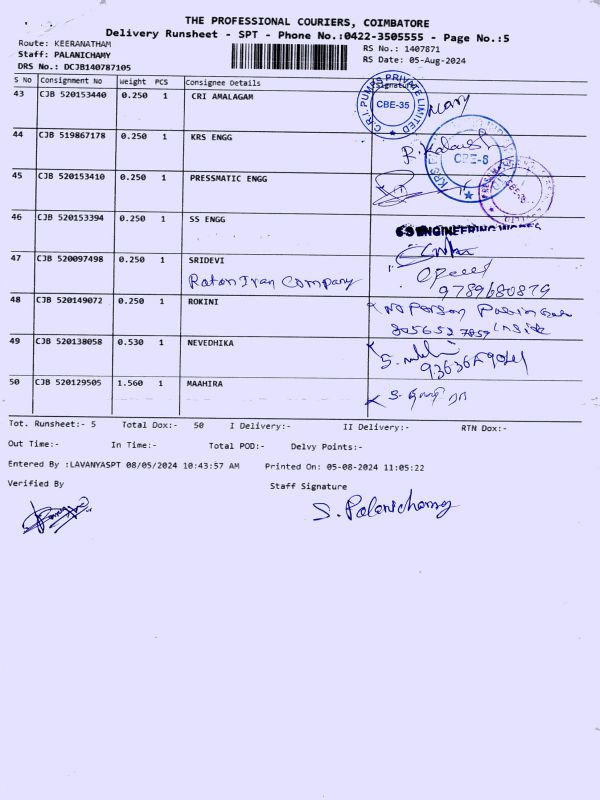 THE PROFESSIONAL COURIERS, COIMBATORE
Delivery Runsheet - SPT - Phone No.:0422-3505555 - Page No.:5
Route: KEERANATHAM
RS No.: 1407871
Staff: PALANICHAMY
RS Date: 05-Aug-2024
DRS No.: DCJB140787105
S No Consignment No Weight PCS Consignee Details Signature
43 CJB 520153440 0.250 1 CRI AMALAGAM
C.R.I. PUMPS PRIVATE LIMITED
CBE-35
Mary
44 CJB 519867178 0.250 1 KRS ENGG
R. Kalaish
CBE-6
45 CJB 520153410 0.250 1 PRESSMATIC ENGG
46 CJB 520153394 0.250 1 SS ENGG
ENGINEERING WORKS
47 CJB 520097498 0.250 1 SRIDEVI
Raton Iran Company
9789680879
48 CJB 520149072 0.250 1 ROKINI
No Person
Inside
49 CJB 520138058 0.530 1 NEVEDHIKA
50 CJB 520129505 1.560 1 MAAHIRA
Tot. Runsheet:- 5 Total Dox:- 50 I Delivery:- II Delivery:- RTN Dox:-
Out Time:- In Time:- Total POD:- Delvy Points:-
Entered By :LAVANYASPT 08/05/2024 10:43:57 AM Printed On: 05-08-2024 11:05:22
Verified By Staff Signature
S. Palanichamy